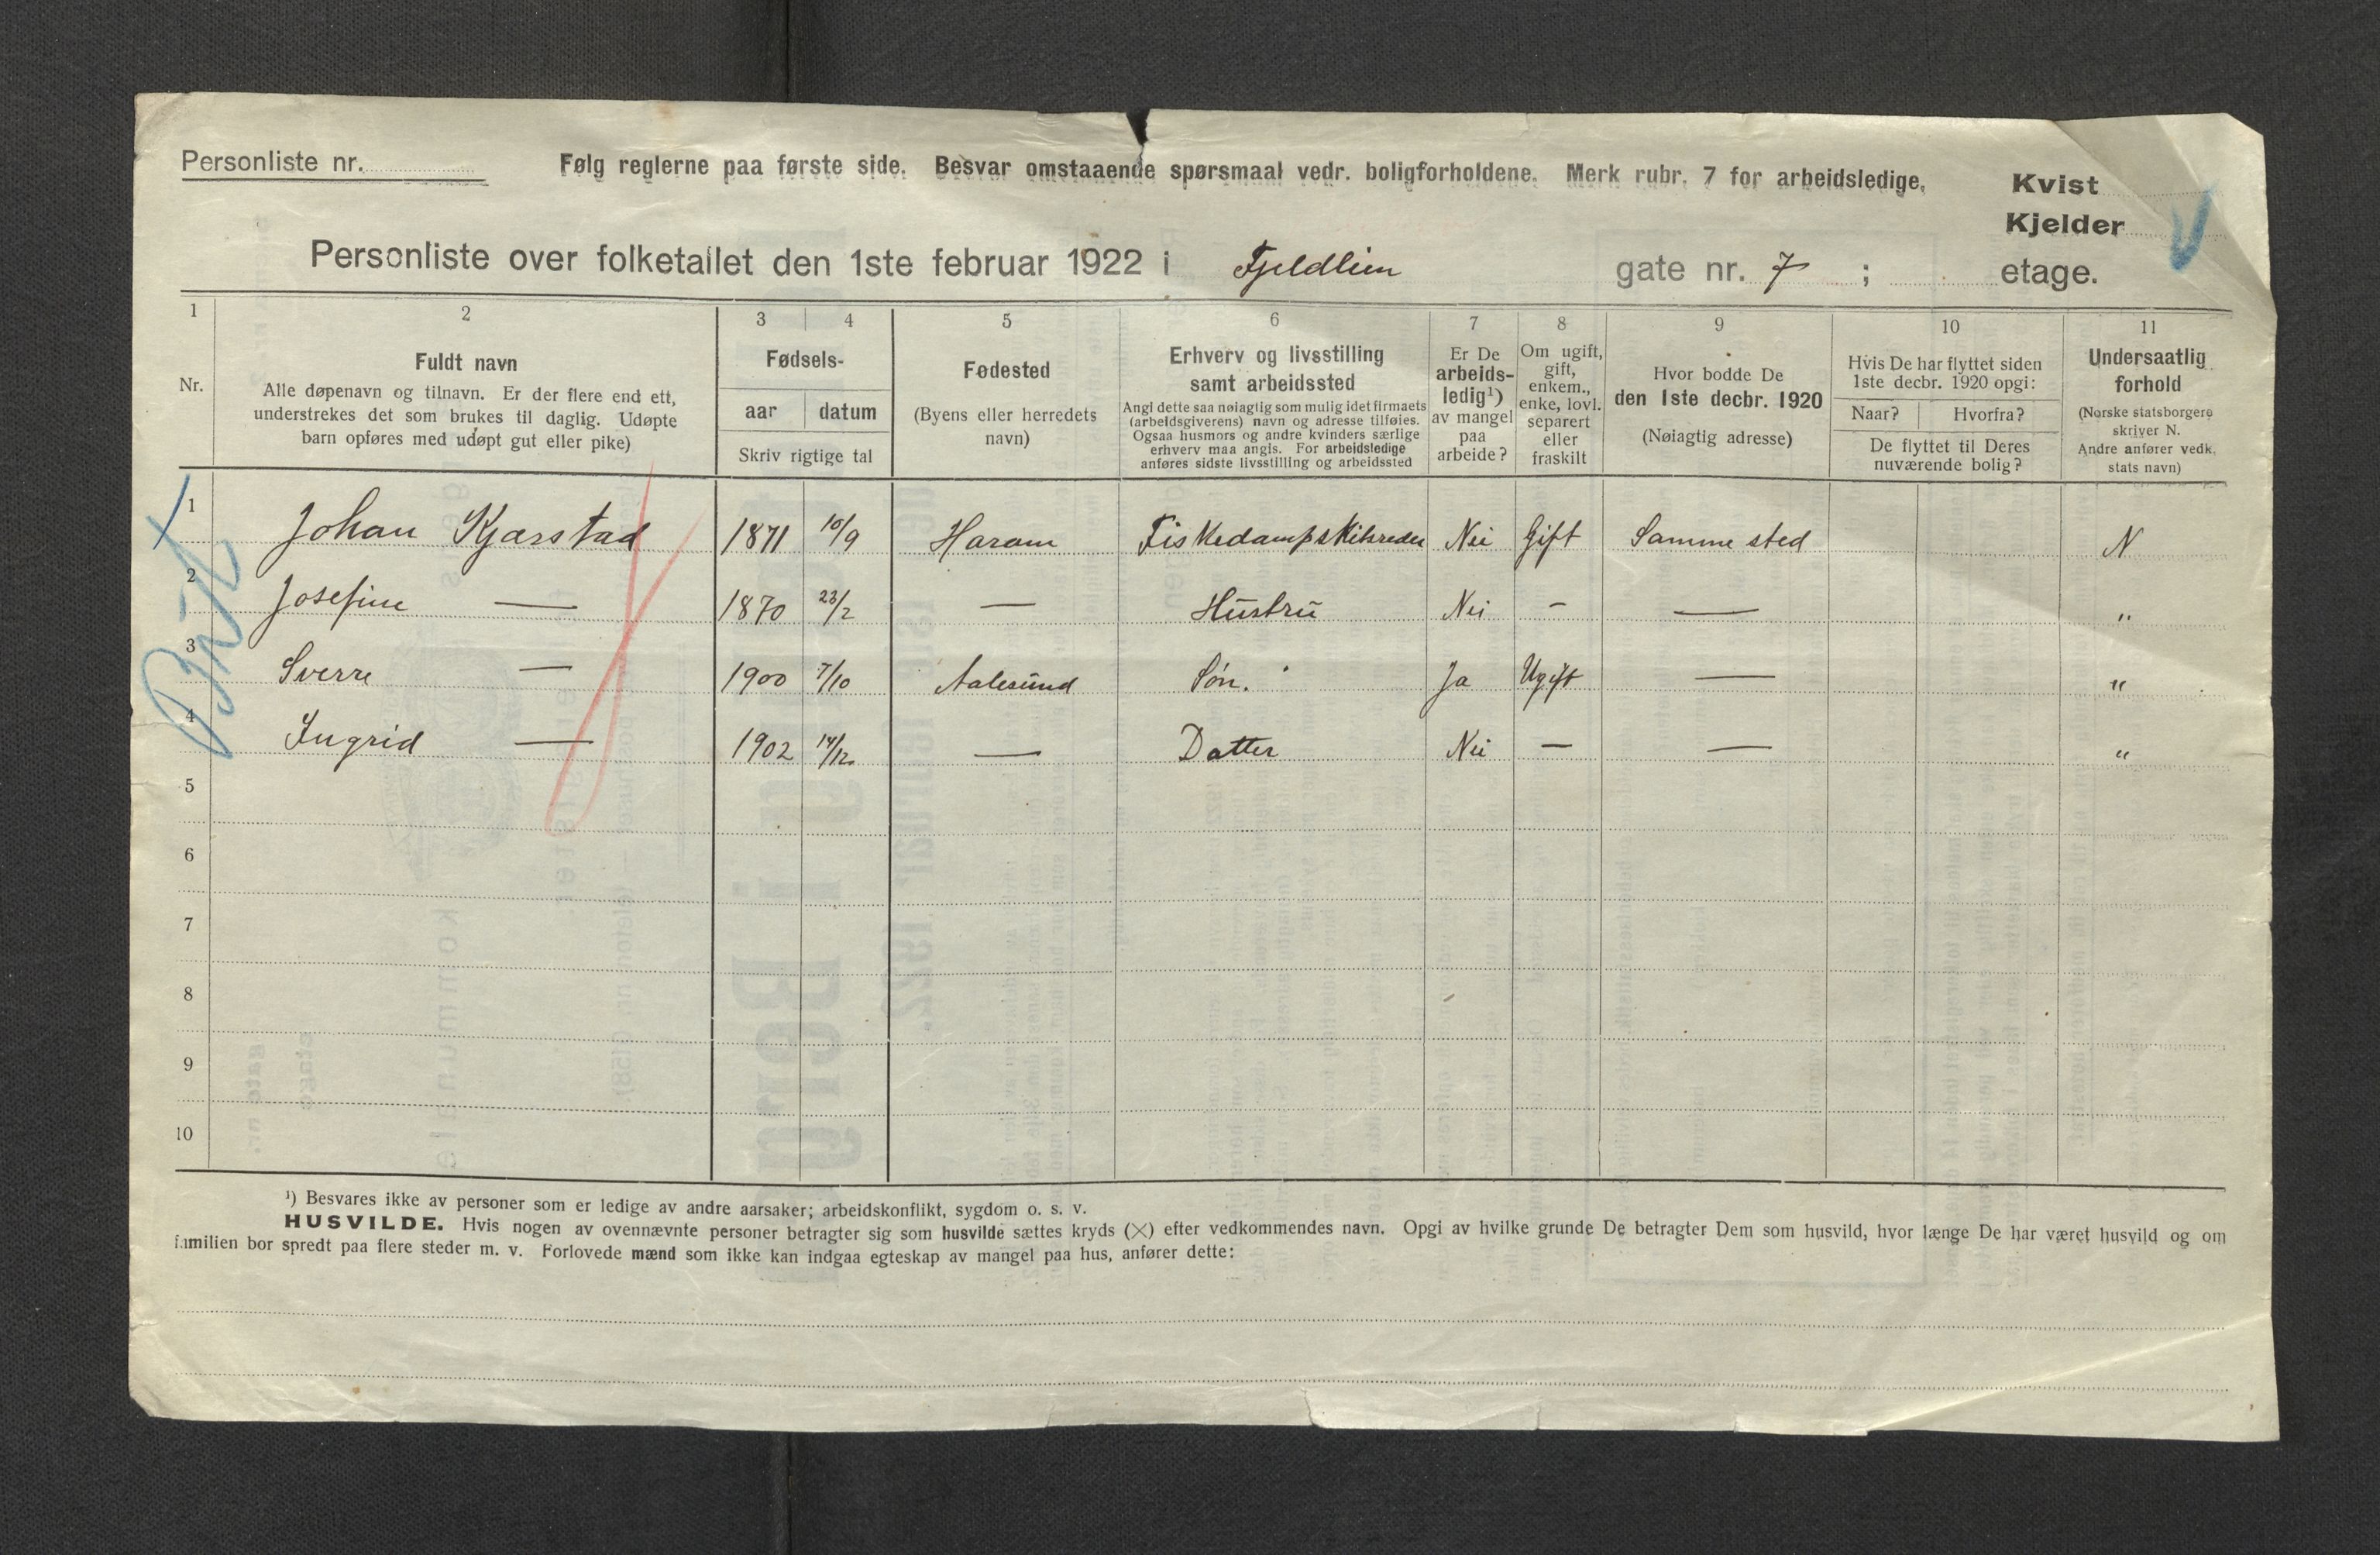 Personliste nr.
Følg reglerne paa første side. Besvar omstaaende spørsmaal vedr. boligforholdene. Merk rubr. 7 for arbeidsledige.
Kvist
Kjelder
Personliste over folketallet den 1ste februar 1922 i Fjeldlien gate nr. 7 ; etage.
1 2 3 4 5 6 7 8 9 10 11
Nr.
Fuldt navn
Alle døpenavn og tilnavn. Er der flere end ett,
understrekes det som brukes til daglig. Udøpte
barn opføres med udøpt gut eller pike)
Fødsels-
aar datum
Skriv rigtige tal
Fødested
(Byens eller herredets
navn)
Erhverv og livsstilling
samt arbeidssted
Angi dette saa nøiagtig som mulig idet firmaets
(arbeidsgiverens) navn og adresse tilføies.
Ogsaa husmors og andre kvinders særlige
erhverv maa angis. For arbeidsledige
anføres sidste livsstilling og arbeidssted
Er De
arbeids-
ledig¹)
av mangel
paa
arbeide?
Om ugift,
gift,
enkem.,
enke, lovl.
separert
eller
fraskilt
Hvor bodde De
den 1ste decbr. 1920
(Nøiagtig adresse)
Hvis De har flyttet siden
1ste decbr. 1920 opgi:
Naar? Hvorfra?
De flyttet til Deres
nuværende bolig?
Undersaatlig
forhold
(Norske statsborgere
skriver N.
Andre anfører vedk.
stats navn)
1 Johan Kjærstad 1871 10/9 Haram Fiskedampskibsreder Nei Gift Samme sted N
2 Josefine — 1870 23/2 — Hustru Nei — — "
3 Sverre — 1900 7/10 Aalesund Søn. Ja Ugift — "
4 Ingrid — 1902 14/12 — Datter Nei — — "
5
6
7
8
9
10
¹) Besvares ikke av personer som er ledige av andre aarsaker; arbeidskonflikt, sygdom o. s. v.
HUSVILDE. Hvis nogen av ovennævnte personer betragter sig som husvilde sættes kryds (×) efter vedkommendes navn. Opgi av hvilke grunde De betragter Dem som husvild, hvor længe De har været husvild og om
familien bor spredt paa flere steder m. v. Forlovede mænd som ikke kan indgaa egteskap av mangel paa hus, anfører dette: